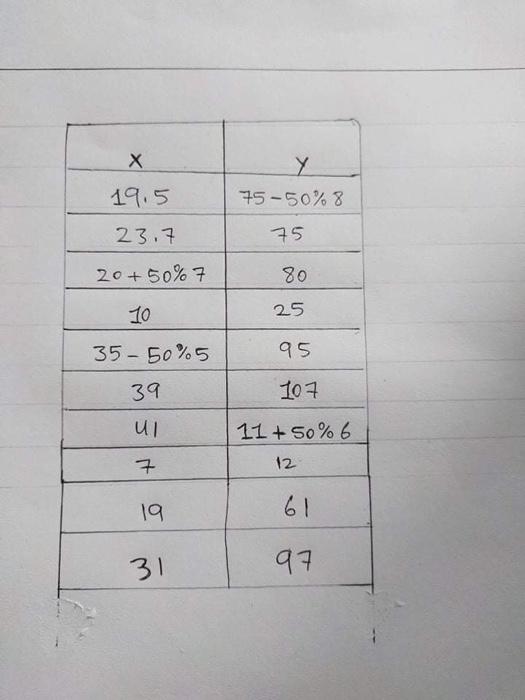 x y
19.5 75-50%8
23.7 75
20+50%7 80
10 25
35-50%5 95
39 107
41 11+50%6
7 12
19 61
31 97